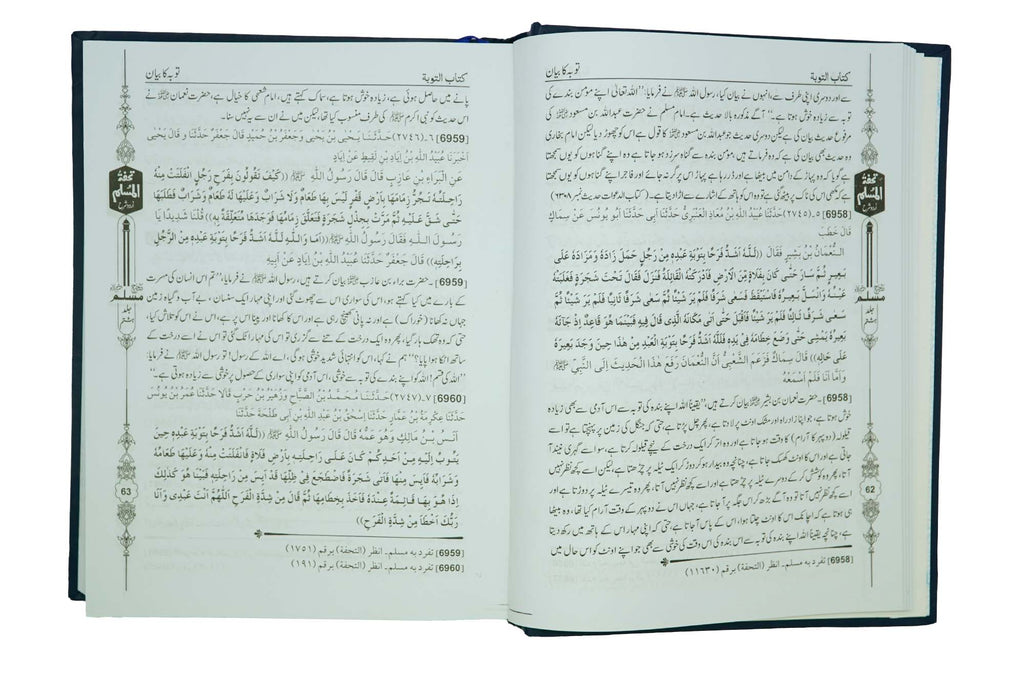 کتاب التوبة
توبہ کا بیان
سے اور دوسری اپنی طرف سے، انہوں نے بیان کیا، رسول اللہ ﷺ نے فرمایا: ’’اللہ تعالیٰ اپنے مؤمن بندے کی
توبہ سے زیادہ خوش ہوتا ہے۔‘‘ آگے مذکورہ بالا حدیث ہے۔ امام مسلم نے حضرت عبداللہ بن مسعود کی
مرفوع حدیث بیان کی ہے لیکن دوسری حدیث جو عبداللہ بن مسعود کا قول ہے اس کو چھوڑ دیا لیکن امام بخاری
نے وہ حدیث بھی بیان کی ہے کہ وہ فرماتے ہیں، مؤمن بندہ سے گناہ سرزد ہو جاتا ہے وہ اپنے گناہوں کو یوں سمجھتا
ہے گویا کہ وہ پہاڑ کے دامن میں بیٹھا ہے اور ڈر رہا ہے پہاڑ اس پر گر نہ جائے اور فاجر اپنے گناہوں کو یوں سمجھتا
ہے کہ مکھی اس کی ناک پر بیٹھی ہے تو وہ اس کو ہاتھ کے اشارے سے اڑا دیتا ہے۔ (کتاب الدعوات حدیث نمبر ۶۳۰۸)
[6958] ٥۔(٢٧٤٥) حَدَّثَنَا عُبَيْدُ اللَّهِ بْنُ مُعَاذٍ الْعَنْبَرِيُّ حَدَّثَنَا أَبِي حَدَّثَنَا أَبُو يُونُسَ عَنْ سِمَاكٍ
قَالَ خَطَبَ
النُّعْمَانُ بْنُ بَشِيرٍ فَقَالَ ((لَلَّهُ أَشَدُّ فَرَحًا بِتَوْبَةِ عَبْدِهِ مِنْ رَجُلٍ حَمَلَ زَادَهُ وَمَزَادَهُ عَلَى
بَعِيرٍ ثُمَّ سَارَ حَتَّى كَانَ بِفَلَاةٍ مِّنَ الْأَرْضِ فَأَدْرَكَتْهُ الْقَائِلَةُ فَنَزَلَ فَقَالَ تَحْتَ شَجَرَةٍ فَغَلَبَتْهُ
عَيْنُهُ وَانْسَلَّ بَعِيرُهُ فَاسْتَيْقَظَ فَسَعٰى شَرَفًا فَلَمْ يَرَ شَيْئًا ثُمَّ سَعٰى شَرَفًا ثَانِيًا فَلَمْ يَرَ شَيْئًا ثُمَّ
سَعٰى شَرَفًا ثَالِثًا فَلَمْ يَرَ شَيْئًا فَأَقْبَلَ حَتَّى أَتٰى مَكَانَهُ الَّذِي قَالَ فِيهِ فَبَيْنَمَا هُوَ قَاعِدٌ إِذْ جَائَهُ
بَعِيرُهُ يَمْشِي حَتَّى وَضَعَ خِطَامَهُ فِي يَدِهِ فَلَلَّهُ أَشَدُّ فَرَحًا بِتَوْبَةِ الْعَبْدِ مِنْ هٰذَا حِينَ وَجَدَ بَعِيرَهُ
عَلَى حَالِهِ)) قَالَ سِمَاكٌ فَزَعَمَ الشَّعْبِيُّ أَنَّ النُّعْمَانَ رَفَعَ هٰذَا الْحَدِيثَ إِلَى النَّبِيِّ ﷺ
وَأَمَّا أَنَا فَلَمْ أَسْمَعْهُ
[6958]۔ حضرت نعمان بن بشیر بیان کرتے ہیں، ’’یقیناً اللہ اپنے بندہ کی توبہ سے اس آدمی سے بھی زیادہ
خوش ہوتا ہے، جو اپنا زاد راہ اور مشک اونٹ پر لادتا ہے، پھر چل پڑتا ہے حتیٰ کہ جنگل کی زمین پر پہنچتا ہے تو اسے
قیلولہ (دوپہر کا آرام) کا وقت ہو جاتا ہے اور وہ اتر کر ایک درخت کے نیچے قیلولہ کرتا ہے، سو اسے گہری نیند آ
جاتی ہے اور اس کا اونٹ کھسک جاتا ہے، چنانچہ وہ بیدار ہو کر دوڑ کر ایک ٹیلہ پر چڑھتا ہے اور اسے کچھ نظر نہیں
آتا، پھر وہ کوشش کر کے دوسرے ٹیلہ پر چڑھتا ہے اور اسے کچھ نظر نہیں آتا، پھر وہ تیسرے ٹیلہ پر دوڑتا ہے اور
اسے کچھ نظر نہیں آتا تو وہ آگے بڑھ کر اس جگہ پر آ جاتا ہے، جہاں اس نے دوپہر کے وقت آرام کیا تھا، وہ بیٹھا
ہی ہوتا ہے کہ اچانک اس کا اونٹ چلتا ہوا، اس کے پاس آ جاتا ہے حتیٰ کہ اپنی مہار اس کے ہاتھ میں رکھ دیتا
ہے، چنانچہ یقیناً اللہ اپنے بندہ کی توبہ سے اس بندہ کی اس وقت کی خوشی سے بھی جو اپنے اونٹ کو اس حال میں
[6958] تفرد به مسلم۔ انظر (التحفة) برقم (١١٦٣٠)
تحفۃ
المسلم
مسلم
جلد
ہشتم
62
کتاب التوبة
توبہ کا بیان
پانے میں حاصل ہوئی ہے، زیادہ خوش ہوتا ہے، سماک کہتے ہیں، امام شعبی کا خیال ہے، حضرت نعمان نے
اس حدیث کو نبی اکرم ﷺ کی طرف منسوب کیا تھا، لیکن میں نے ان سے یہ نہیں سنا۔
[6959] ٦۔(٢٧٤٦) حَدَّثَنَا يَحْيَى بْنُ يَحْيَى وَجَعْفَرُ بْنُ حُمَيْدٍ قَالَ جَعْفَرٌ حَدَّثَنَا و قَالَ يَحْيَى
أَخْبَرَنَا عُبَيْدُ اللَّهِ بْنُ إِيَادِ بْنِ لَقِيطٍ عَنْ إِيَادٍ
عَنِ الْبَرَاءِ بْنِ عَازِبٍ قَالَ قَالَ رَسُولُ اللَّهِ ﷺ ((كَيْفَ تَقُولُونَ بِفَرَحِ رَجُلٍ انْفَلَتَتْ مِنْهُ
رَاحِلَتُهُ تَجُرُّ زِمَامَهَا بِأَرْضٍ قَفْرٍ لَيْسَ بِهَا طَعَامٌ وَلَا شَرَابٌ وَعَلَيْهَا لَهُ طَعَامٌ وَشَرَابٌ فَطَلَبَهَا
حَتَّى شَقَّ عَلَيْهِ ثُمَّ مَرَّتْ بِجِذْلِ شَجَرَةٍ فَتَعَلَّقَ زِمَامُهَا فَوَجَدَهَا مُتَعَلِّقَةً بِهِ)) قُلْنَا شَدِيدًا يَا
رَسُولَ اللَّهِ فَقَالَ رَسُولُ اللَّهِ ﷺ ((أَمَا وَاللَّهِ لَلَّهُ أَشَدُّ فَرَحًا بِتَوْبَةِ عَبْدِهِ مِنَ الرَّجُلِ
بِرَاحِلَتِهِ)) قَالَ جَعْفَرٌ حَدَّثَنَا عُبَيْدُ اللَّهِ بْنُ إِيَادٍ عَنْ أَبِيهِ
[6959]۔ حضرت براء بن عازب بیان کرتے ہیں، رسول اللہ ﷺ نے فرمایا، ’’تم اس انسان کی مسرت
کے بارے میں کیا کہتے ہو، اس کی سواری اس سے چھوٹ گئی اور اپنی مہار ایک سنسان، بے آب و گیاہ زمین
جہاں نہ کھانا (خوراک) ہے اور نہ پانی کھینچ رہی ہے اور اس کا کھانا اور پینا اس پر ہے، اس نے اس کو تلاش کیا،
حتیٰ کہ وہ تھک ہار گیا، پھر وہ ایک درخت کے تنے سے گزری تو اس کی مہار اٹک گئی تو اس نے اسے درخت کے
ساتھ اٹکا ہوا پایا؟‘‘ ہم نے کہا، اس کو انتہائی شدید خوشی ہوگی، اے اللہ کے رسول! تو رسول اللہ ﷺ نے فرمایا:
’’اللہ کی قسم! اللہ کو اپنے بندے کی توبہ سے خوشی، اس آدمی کو اپنی سواری کے حصول پر خوشی سے زیادہ ہوتی ہے۔‘‘
[6960] ٧۔(٢٧٤٧) حَدَّثَنَا مُحَمَّدُ بْنُ الصَّبَّاحِ وَزُهَيْرُ بْنُ حَرْبٍ قَالَا حَدَّثَنَا عُمَرُ بْنُ يُونُسَ
حَدَّثَنَا عِكْرِمَةُ بْنُ عَمَّارٍ حَدَّثَنَا إِسْحٰقُ بْنُ عَبْدِ اللَّهِ بْنِ أَبِي طَلْحَةَ حَدَّثَنَا
أَنَسُ بْنُ مَالِكٍ وَهُوَ عَمُّهُ قَالَ قَالَ رَسُولُ اللَّهِ ﷺ ((لَلَّهُ أَشَدُّ فَرَحًا بِتَوْبَةِ عَبْدِهِ حِينَ
يَتُوبُ إِلَيْهِ مِنْ أَحَدِكُمْ كَانَ عَلَى رَاحِلَتِهِ بِأَرْضِ فَلَاةٍ فَانْفَلَتَتْ مِنْهُ وَعَلَيْهَا طَعَامُهُ
وَشَرَابُهُ فَأَيِسَ مِنْهَا فَأَتَى شَجَرَةً فَاضْطَجَعَ فِي ظِلِّهَا قَدْ أَيِسَ مِنْ رَاحِلَتِهِ فَبَيْنَا هُوَ كَذٰلِكَ
إِذَا هُوَ بِهَا قَائِمَةً عِنْدَهُ فَأَخَذَ بِخِطَامِهَا ثُمَّ قَالَ مِنْ شِدَّةِ الْفَرَحِ اَللّٰهُمَّ أَنْتَ عَبْدِي وَأَنَا
رَبُّكَ أَخْطَأَ مِنْ شِدَّةِ الْفَرَحِ))
[6959] تفرد به مسلم۔ انظر (التحفة) برقم (١٧٥١)
[6960] تفرد به مسلم۔ انظر (التحفة) برقم (١٩١)
تحفۃ
المسلم
مسلم
جلد
ہشتم
63